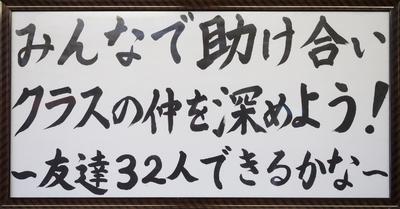 みんなで助け合い
クラスの仲を深めよう!
~友達32人できるかな~